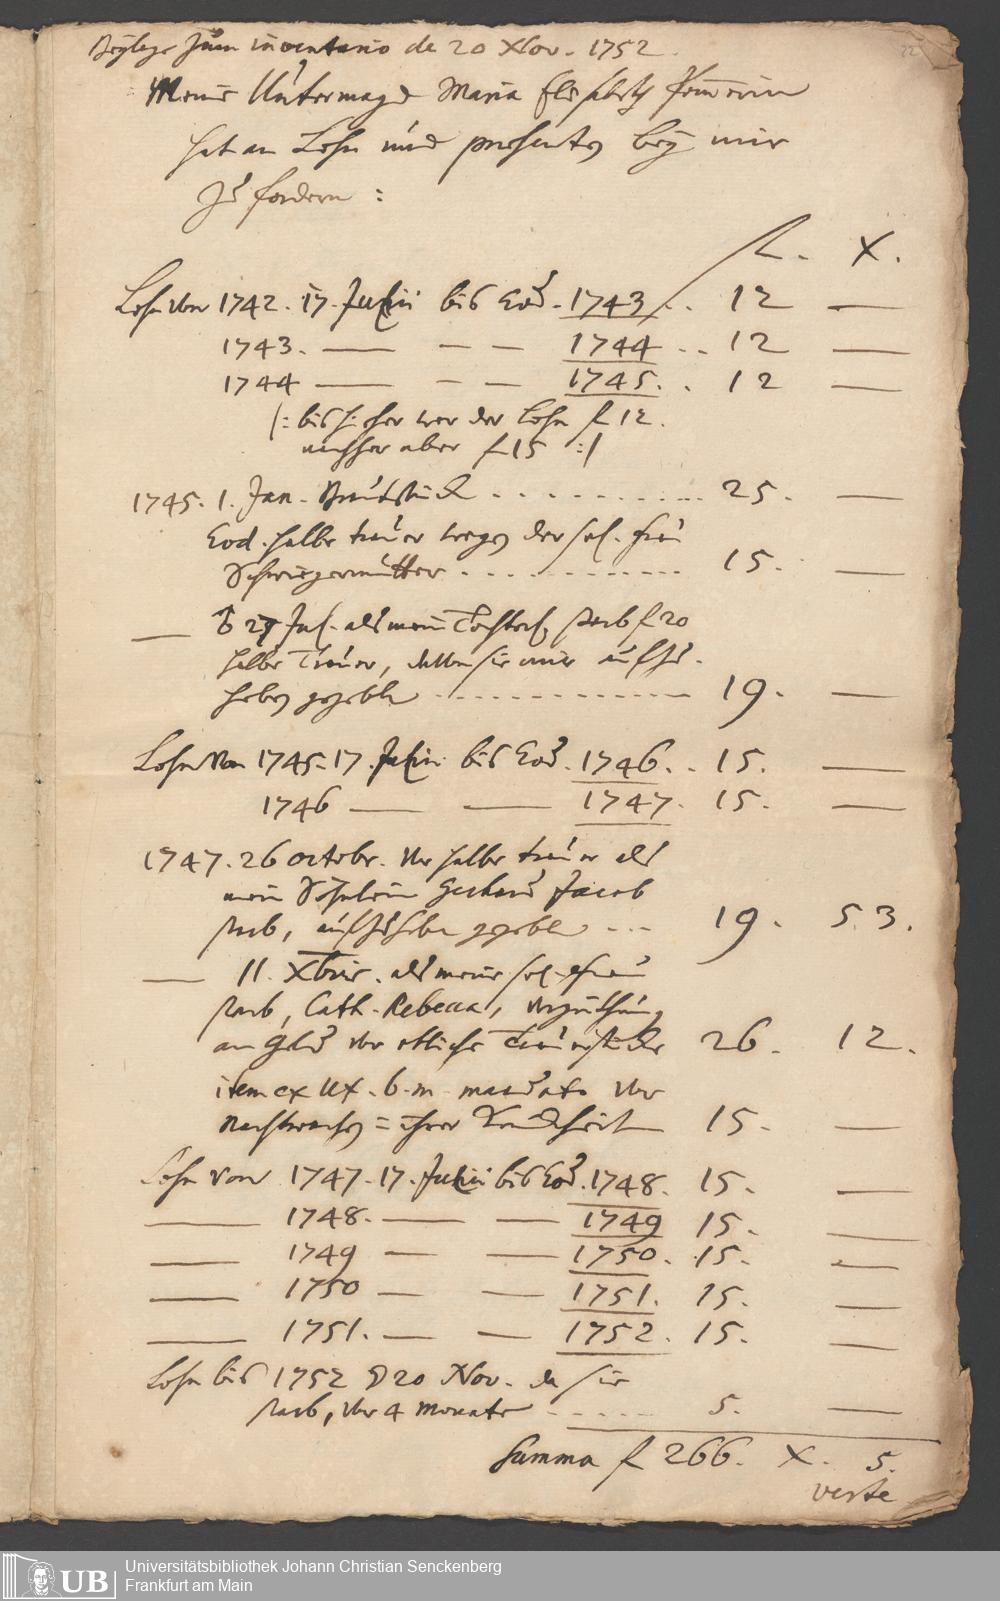 Beylage zum inventario de 20 Nov. 1752.
22
Meine Untermagd Maria Elisabeth
hat an Lohn und presenten bey mir
zu fordern :
f. X.
Lohn von 1742. 17. Julii bis Eod. 1743 . . 12 —
1743. — — — 1744 . . 12 —
1744 — — — 1745. . 12 —
/: bis hieher war der Lohn f 12.
nachher aber f 15 :/
1745. 1. Jan. . . . . . . . . . . 25. —
Eod. halbe trauer wegen der sel. Frau
Schwiegermutter . . . . . . . . . . 15. —
— ♄ 27 Jul. als mein Töchterl. starb f 20
halbe Trauer, davon sie mir aufzu-
heben gegeben . . . . . . . . . . 19. —
Lohn von 1745. 17. Julii bis Eod. 1746. . 15. —
1746 — — 1747. 15. —
1747. 26 octobr. vor halbe trauer als
mein Söhnlein Gerhard Jacob
starb, aufzuheben gegeben . . . 19. 53.
— 11. Xbris. als meine sel. Frau
starb, Cath. Rebecca, Vergüthung
an Geld vor etliche Trauerstücke 26. 12.
item ex Ux. b. m. mandato vor
Nachtwachen in ihrer Kranckheit 15. —
Lohn von 1747. 17. Julii bis Eod. 1748. 15. —
— 1748. — — 1749 15. —
— 1749 — — 1750. 15. —
— 1750 — — 1751. 15. —
— 1751. — — 1752. 15. —
Lohn bis 1752 d 20 Nov. da sie
starb, vor 4 Monate . . . . . 5. —
Summa f 266. X. 5.
verte
UB
Universitätsbibliothek Johann Christian Senckenberg
Frankfurt am Main